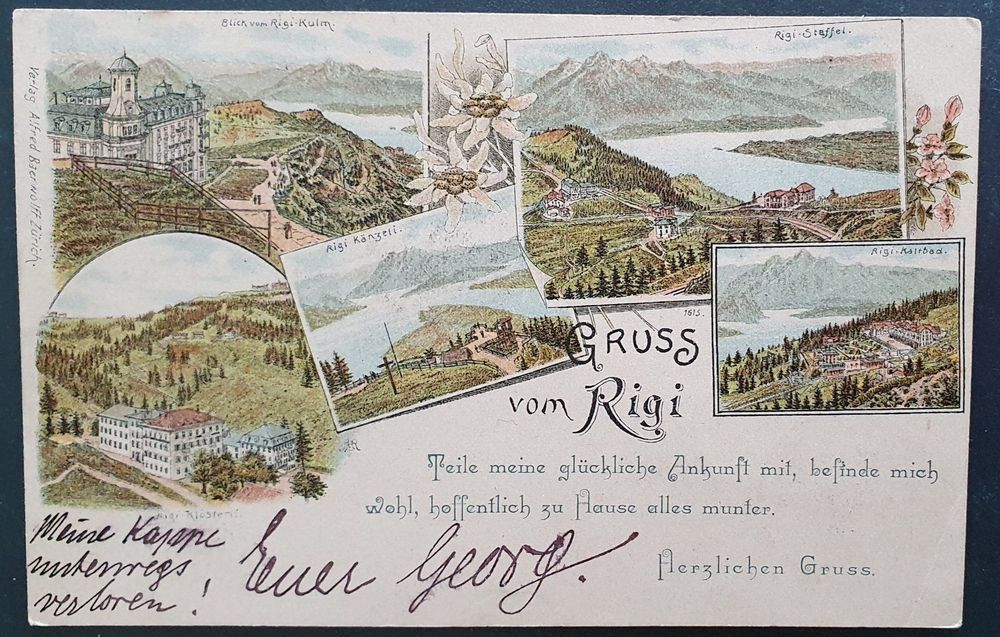 Blick vom Rigi-Kulm.
Rigi-Staffel.
Verlag Alfred Baerwolff Zürich.
Rigi Känzeli.
Rigi-Kaltbad.
1615.
GRUSS
vom Rigi
Teile meine glückliche Ankunft mit, befinde mich
wohl, hoffentlich zu Hause alles munter.
Rigi-Klösterli.
Herzlichen Gruss.
Meine Kappe
unterwegs
verloren!
Euer Georg.